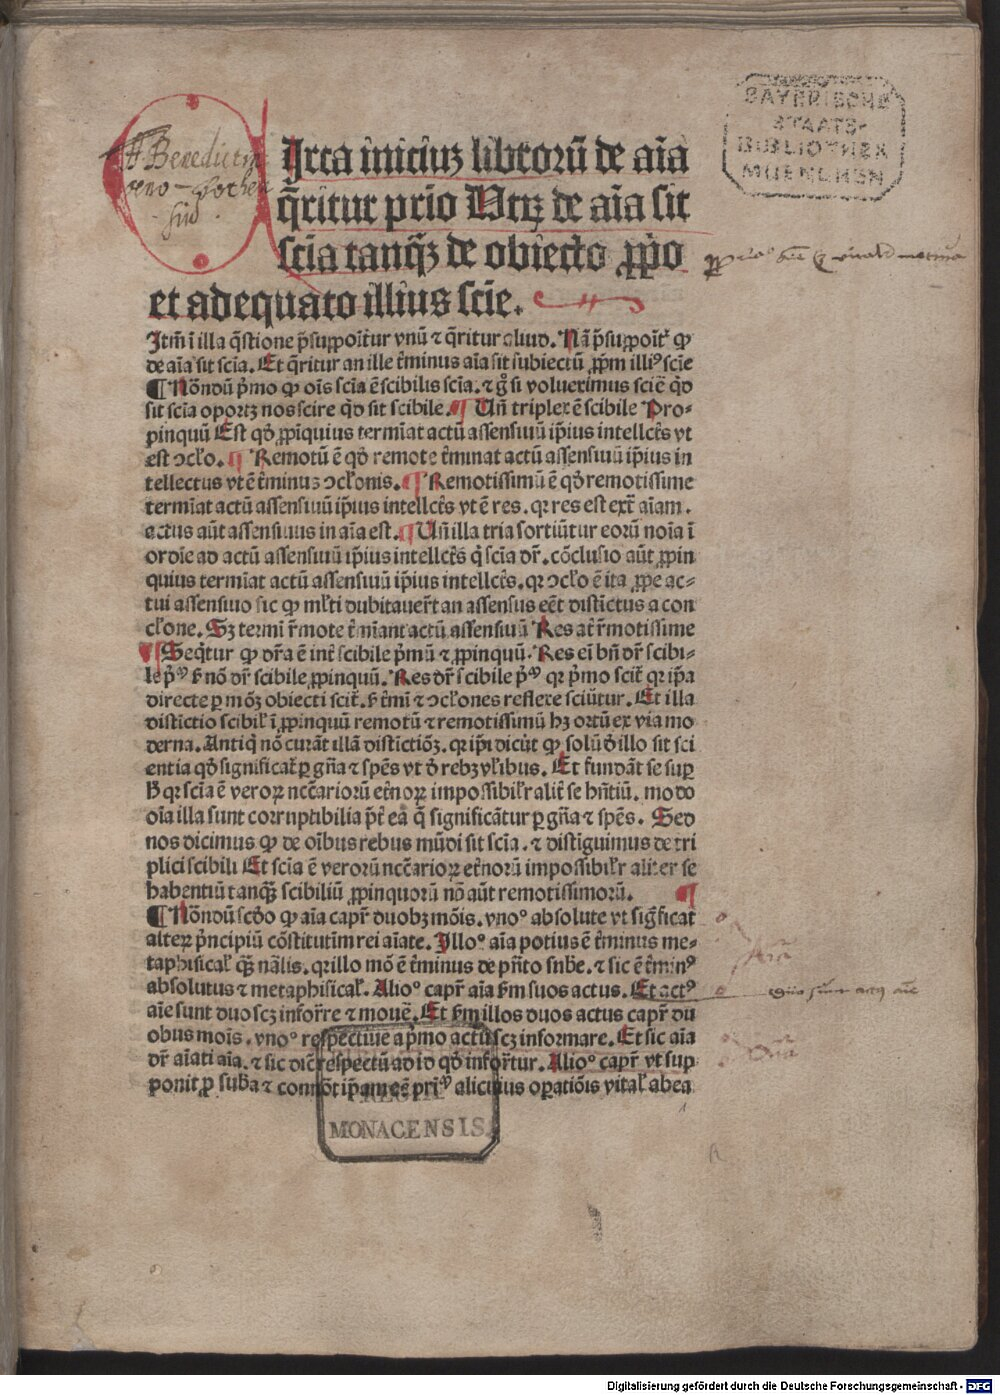 BAYERISCHE
STAATS-
BIBLIOTHEK
MUENCHEN
Benedictin
Irca iniciuꝫ libroꝛũ de aĩa
q̃ritur pꝛio Vtꝝ de aĩa sit
scĩa tanq̃ꝫ de obiecto ꝓpo
et adequato illius scie.
Itm̃ ĩ illa q̃stione p̃suppoit̃ur vnũ ⁊ q̃ritur aliud. Nã p̃suppoit̃ ꝙ
de aĩa sit scĩa. Et q̃ritur an ille t̃minus aĩa sit subiectũ ꝓpm illiꝰ scĩe
¶ Nõndũ p̃mo ꝙ oĩs scĩa ẽ scibilis scĩa. ⁊ g̊ si voluerimus scire q̃d
sit scĩa oportꝫ nos scire q̃d sit scibile. ¶ Vñ triplex ẽ scibile Pro-
pinquũ Est qd̃ ꝓpĩquius termĩat actũ assensiuũ ip̃ius intellcꝰs vt
est ↄcło. ¶ Remotũ ẽ qd̃ remote t̃minat actũ assensiuũ ip̃ius in
tellectus vt ẽ t̃minus ↄcłonis. ¶ Remotissimũ ẽ qd̃ remotissime
termĩat actũ assensiuũ ip̃ius intellcꝰs vt ẽ res. qꝛ res est ext̃ aĩam.
actus aũt assensiuus in aĩa est. ¶ Vñ illa tria sortiũtur eorũ noĩa ĩ
ordĩe ad actũ assensiuũ ip̃ius intellcꝰs q̃ scĩa dr̃. cõclusio aũt ꝓpin
quius termĩat actũ assensiuũ ip̃ius intellcꝰs. qꝛ ↄcło ẽ ita ꝓpe ac-
tui assensiuo sic ꝙ młti dubitauer̃t an assensus eẽt distĩctus a con
cłone. Sꝫ termĩ r̃mote t̃mĩant actũ assensiuũ Res at̃ r̃motissime
¶ Seq̃tur ꝙ dr̃a ẽ int̃ scibile p̃mũ ⁊ ꝓpinquũ. Res eĩ bñ dr̃ scibi-
le p̃ꝰ s̃ nõ dr̃ scibile ꝓpinquũ. Res dr̃ scibile p̃ꝰ qꝛ p̃mo scit̃ qꝛ ip̃a
directe ꝑ moꝫ obiecti scit̃. s̃ t̃mĩ ⁊ ↄcłones reflexe sciũtur. Et illa
distĩctio scibił ĩ ꝓpinquũ remotũ ⁊ remotissimũ hꝫ ortũ ex via mo
derna. Antiq̃ nõ curãt illã distĩctiõꝫ. qꝛ ip̃i dicũt ꝙ solũ d̃ illo sit sci
entia qd̃ significat̃ ꝑ gñа ⁊ spẽs vt d̃ rebꝫ vłibus. Et fundãt se suꝑ
h̃ qꝛ scĩa ẽ veroꝝ nccãriorũ et̃noꝝ impossibilr̃ alit̃ se hñtiũ. modo
oĩa illa sunt corruptibilia p̃t ea q̃ significãtur ꝑ gñа ⁊ spẽs. Sed
nos dicimus ꝙ de oĩbus rebus mũdi sit scĩa. ⁊ distĩguimus de tri
plici scibili Et scĩa ẽ verorũ nccãrioꝝ et̃norũ impossibilr̃ aliter se
habentiũ tanq̃ꝫ scibiliũ ꝓpinquorũ nõ aũt remotissimorũ. ¶
¶ Nõndũ scd̃o ꝙ aĩa capit̃ duobꝫ mõis. vno° absolute vt sig̃ficat
alteꝝ p̃ncipiũ cõstitutiũm rei aĩate. Illo° aĩa potius ẽ t̃minus me-
taphisicał q̃ꝫ nãlis. qꝛ illo mõ ẽ t̃minus de pñto snb̃e. ⁊ sic ẽ t̃minꝰ
absolutus ⁊ metaphisicał. Alio° capr̃ aĩa s̃m suos actus. Et actꝰ
aĩe sunt duo scꝫ infor̃re ⁊ mouẽ. Et s̃m illos duos actus capr̃ du
obus moĩs. vno° respectiue a p̃mo actu scꝫ informare. Et sic aĩa
dr̃ aĩati aĩa. ⁊ sic dicit̃ respectũ ad id qd̃ infor̃tur. Alio° capr̃ vt sup
ponit ꝓ sub̃a ⁊ connõt ip̃am eẽ pri° alicuius oꝑatiõis vitał abea
MONACENSIS.
Digitalisierung gefördert durch die Deutsche Forschungsgemeinschaft - DFG